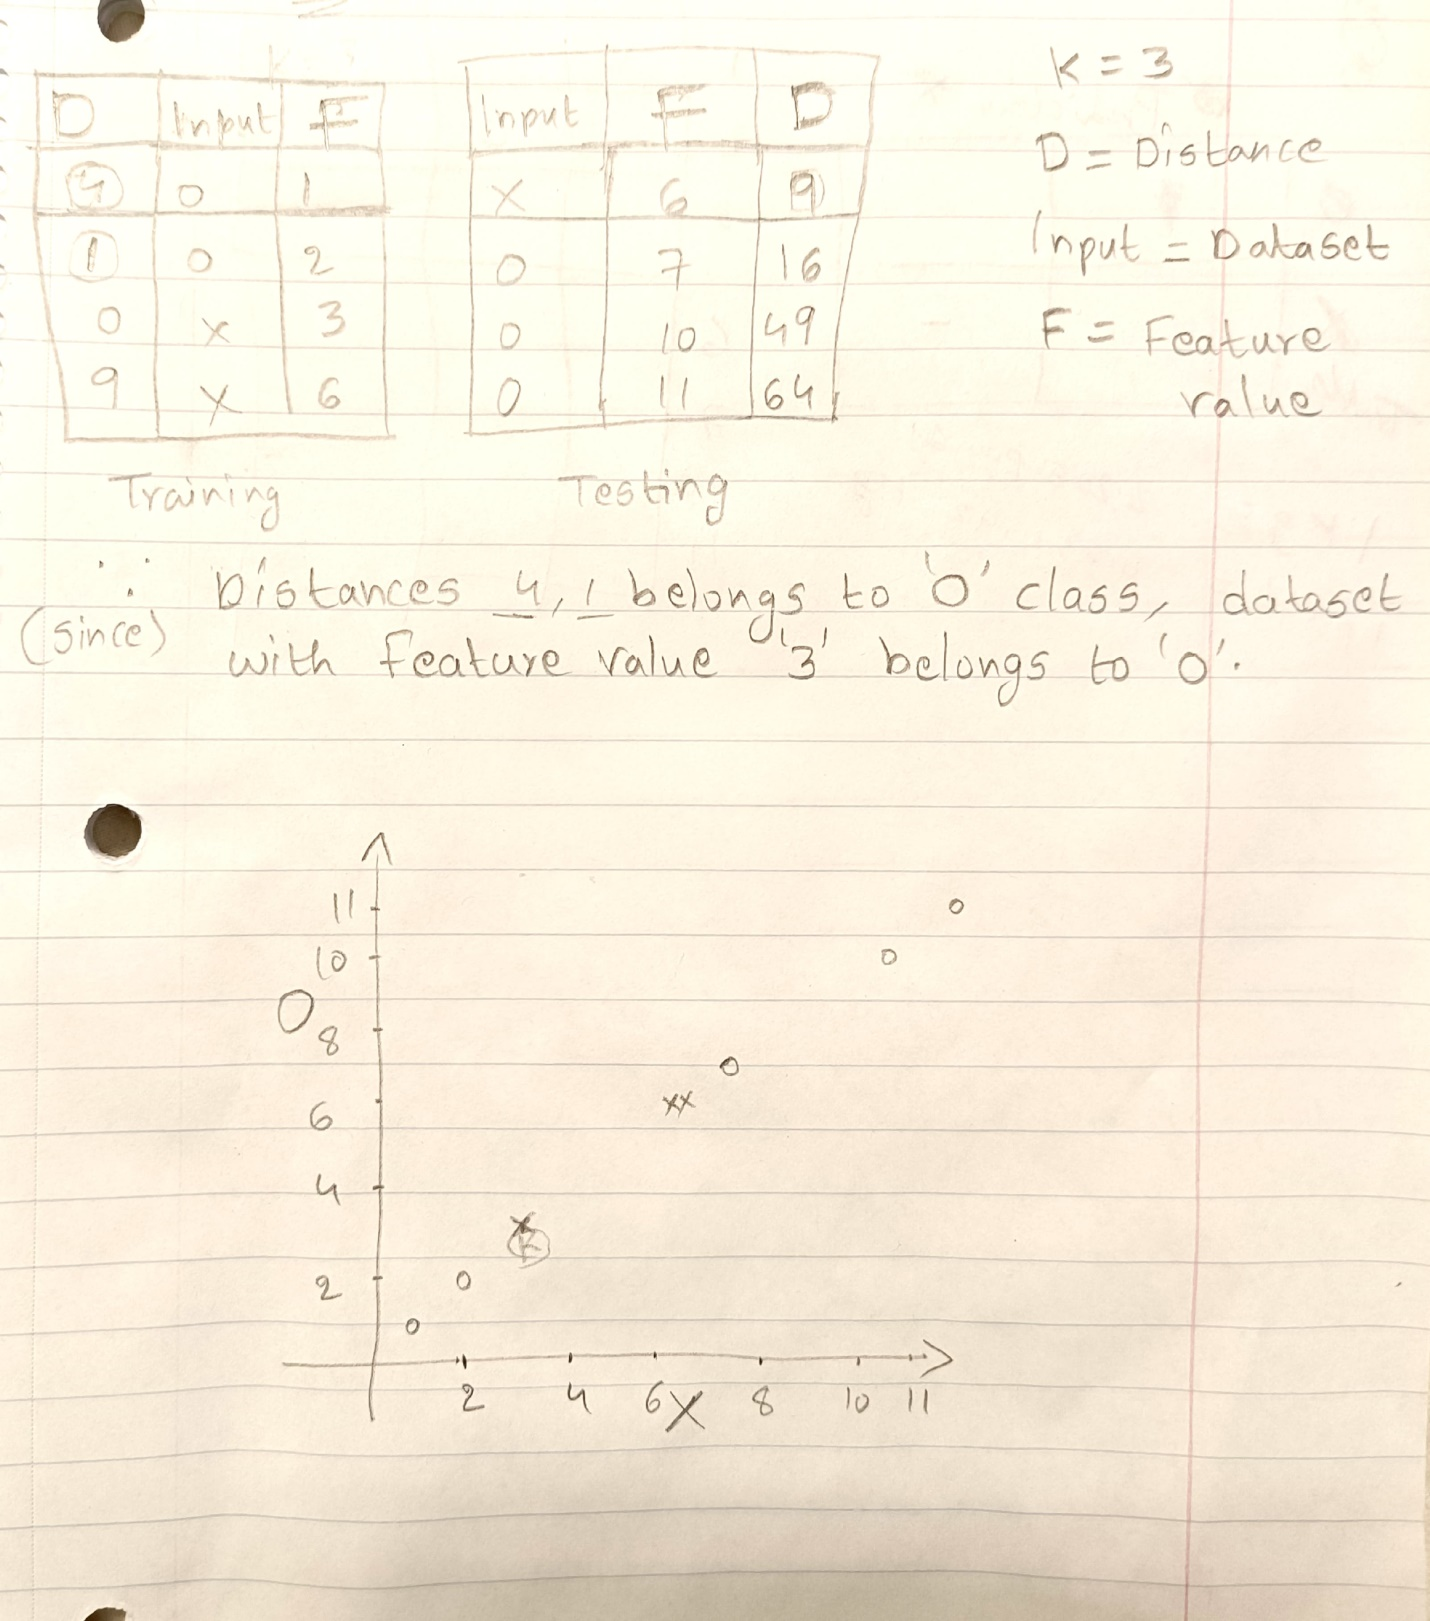 D Input F
4 O 1
1 O 2
0 X 3
9 X 6
Training
Input F D
X 6 9
O 7 16
O 10 49
O 11 64
Testing
K = 3
D = Distance
Input = Dataset
F = Feature
value
∵ Distances 4, 1 belongs to 'O' class, dataset
(since) with feature value '3' belongs to 'O'.
11
10
O
8
6
4
2
o
o
o
xx
x
K
o
o
2 4 6 X 8 10 11